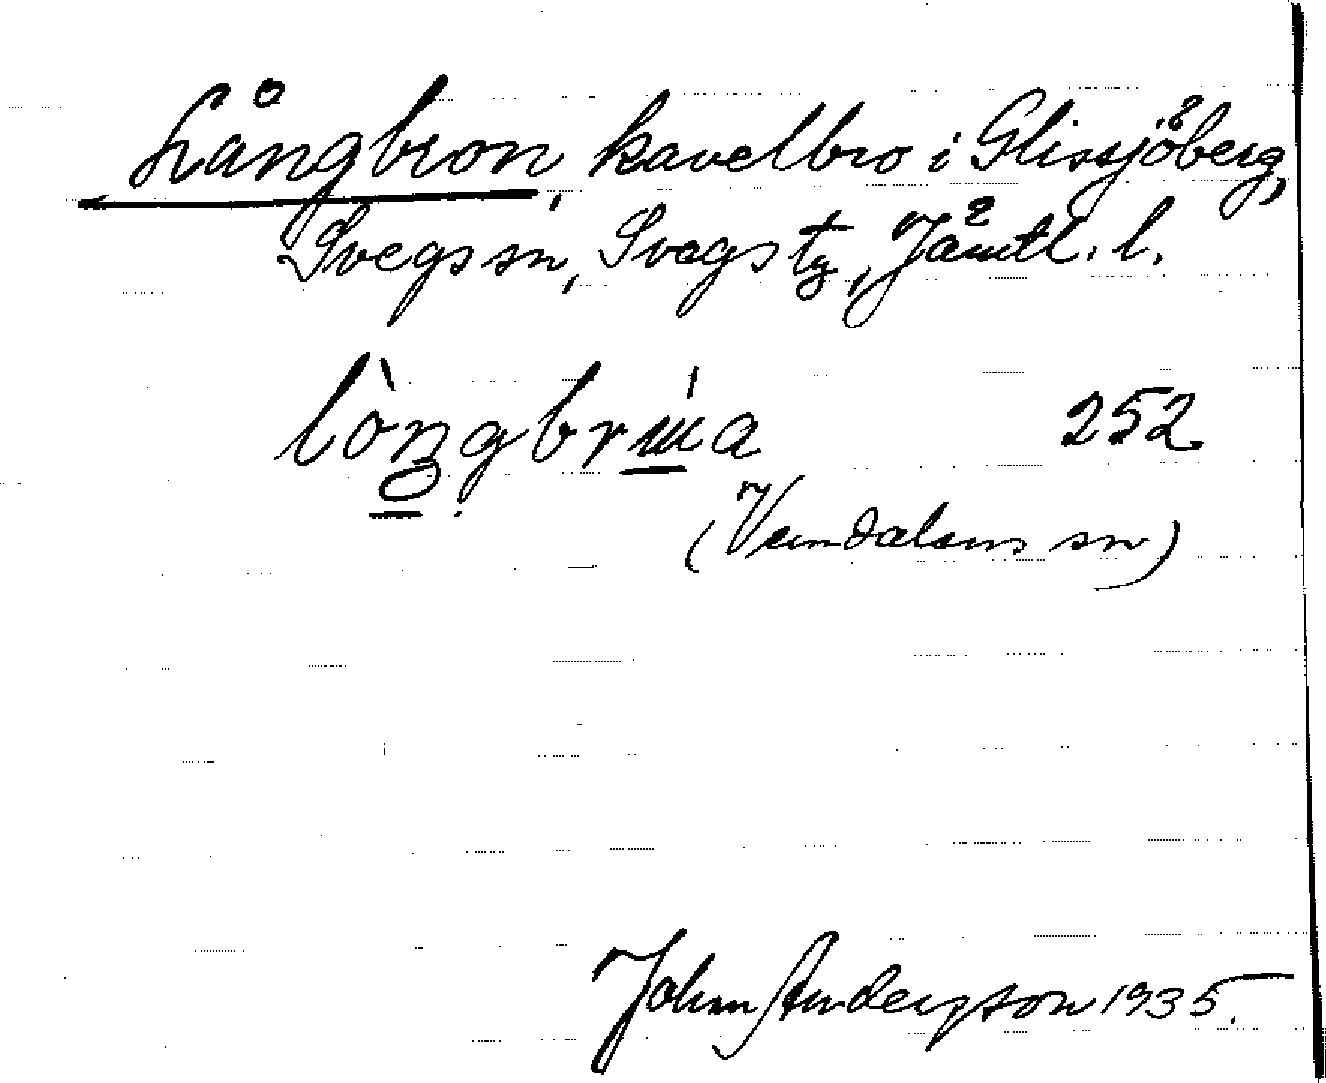 Långbron, kavelbro i Glissjöberg,
Svegs sn, Svegs tg, Jämtl. l.
252
(Vemdalens sn)
John Anderson 1935.